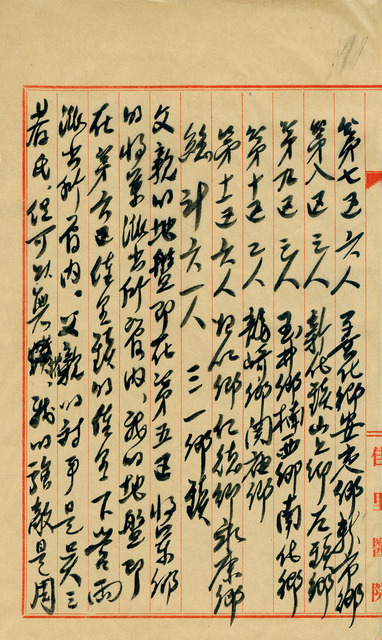 第七区 六人 善化鄉安定鄉新市鄉
第八区 三人 新化鎮山上鄉左鎮鄉
第九区 三人 玉井鄉楠西鄉南化鄉
第十区 二人 龍崎鄉関庙鄉
第十一区 六人 歸仁鄉仁德鄉永康鄉
總計六一人 三一鄉鎮
父親的地盤即在第五区將軍鄉
的將軍派出所管内、我的地盤即
在第六区佳里鎮的佳里下營兩
派出所管内。父親的対手是吳三
者氏、但可以無慎、我的強敵是周
佳里醫院